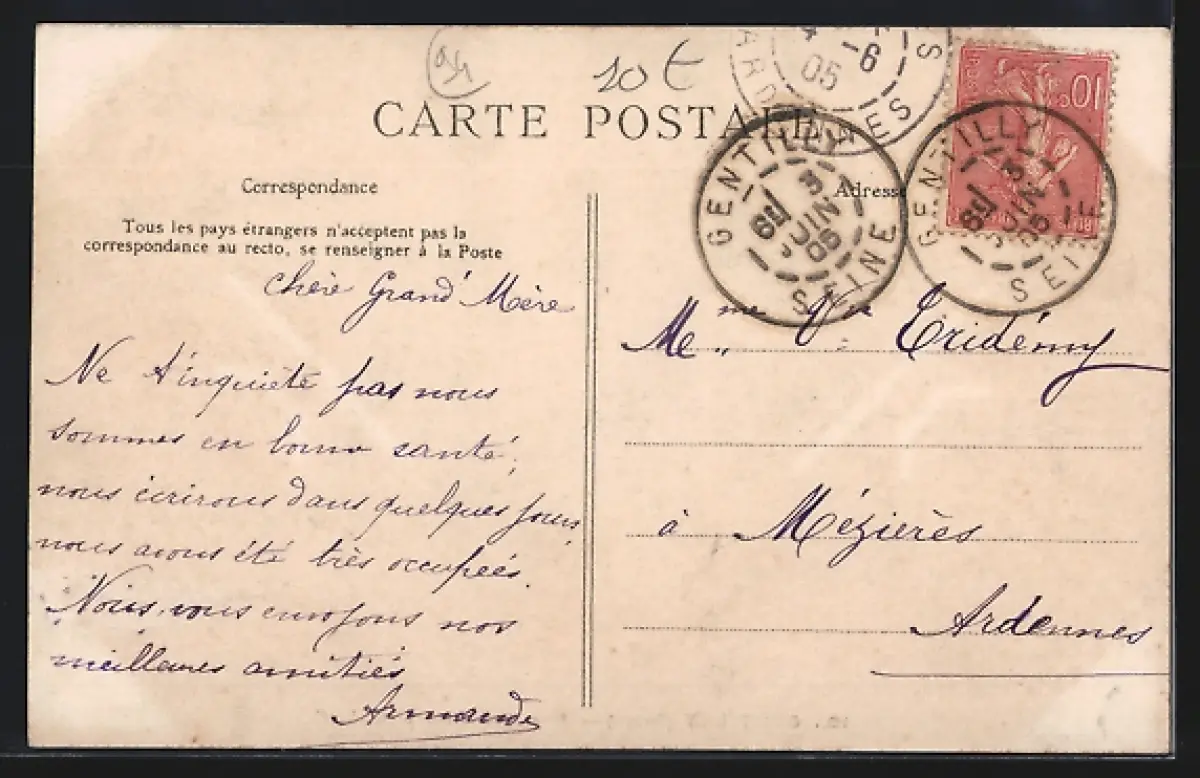 94
10 €
CARTE POSTALE
4 -6
05
ARDENNES
10c
GENTILLY
3
JUIN
05
SEINE
GENTILLY
3
JUIN
05
SEINE
Correspondance
Adresse
Tous les pays étrangers n'acceptent pas la
correspondance au recto, se renseigner à la Poste
Chère Grand'Mère
Ne t'inquiète pas nous
sommes en bonne santé,
nous écrirons dans quelques jours,
nous avons été très occupées.
Nous vous envoyons nos
meilleures amitiés
Armande
Me me Vve Tridémy
à Mézières
Ardennes